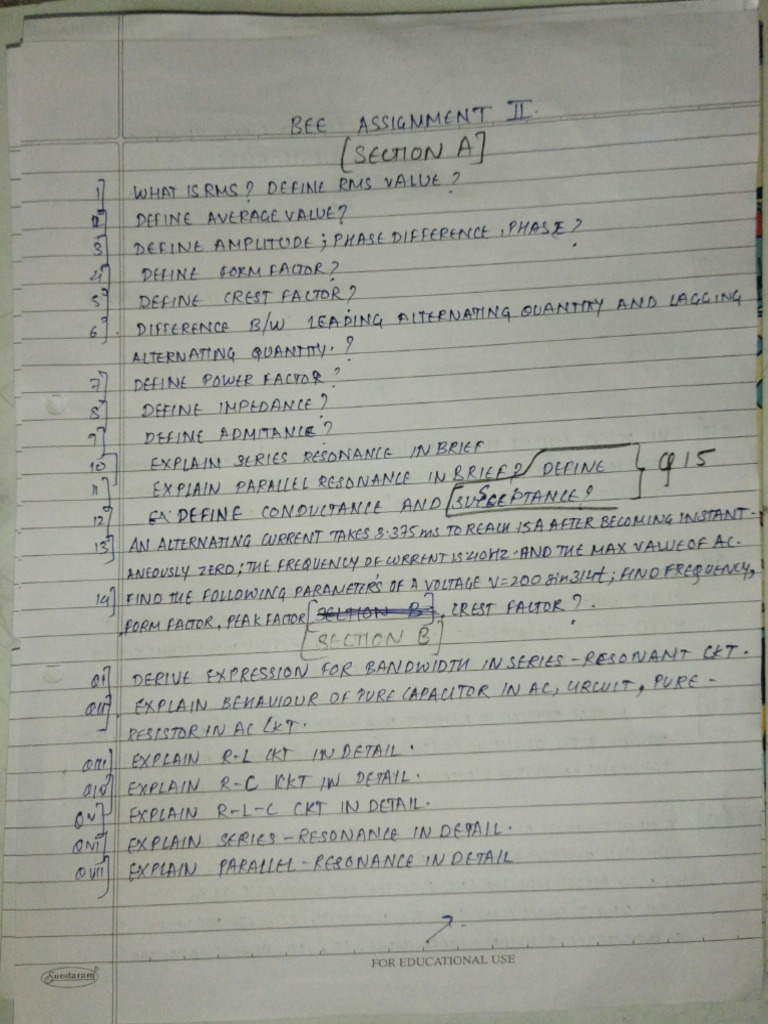 BEE ASSIGNMENT II.
[SECTION A]
1] WHAT IS RMS? DEFINE RMS VALUE?
2] DEFINE AVERAGE VALUE?
3] DEFINE AMPLITUDE; PHASE DIFFERENCE, PHASE?
4] DEFINE FORM FACTOR?
5] DEFINE CREST FACTOR?
6]. DIFFERENCE B/W LEADING ALTERNATING QUANTITY AND LAGGING
ALTERNATING QUANTITY.?
7] DEFINE POWER FACTOR?
8] DEFINE IMPEDANCE?
9] DEFINE ADMITANCE?
10] EXPLAIN SERIES RESONANCE IN BRIEF
11] EXPLAIN PARALLEL RESONANCE IN BRIEF? DEFINE } Q15
12] DEFINE CONDUCTANCE AND SUSCEPTANCE?
13] AN ALTERNATING CURRENT TAKES 3.375 ms TO REACH 15A AFTER BECOMING INSTANT-
ANEOUSLY ZERO; THE FREQUENCY OF CURRENT IS 40HZ. AND THE MAX VALUE OF AC.
14] FIND THE FOLLOWING PARAMETERS OF A VOLTAGE V=200 sin314t; FIND FREQUENCY,
FORM FACTOR, PEAK FACTOR [SECTION B], CREST FACTOR?.
[SECTION B]
QI] DERIVE EXPRESSION FOR BANDWIDTH IN SERIES-RESONANT CKT.
QII]. EXPLAIN BEHAVIOUR OF PURE CAPACITOR IN AC, CIRCUIT, PURE-
RESISTOR IN AC CKT.
QIII] EXPLAIN R-L CKT IN DETAIL.
QIV] EXPLAIN R-C CKT IN DETAIL.
QV] EXPLAIN R-L-C CKT IN DETAIL.
QVI] EXPLAIN SERIES-RESONANCE IN DETAIL.
QVII] EXPLAIN PARALLEL-RESONANCE IN DETAIL
Sundaram®
FOR EDUCATIONAL USE